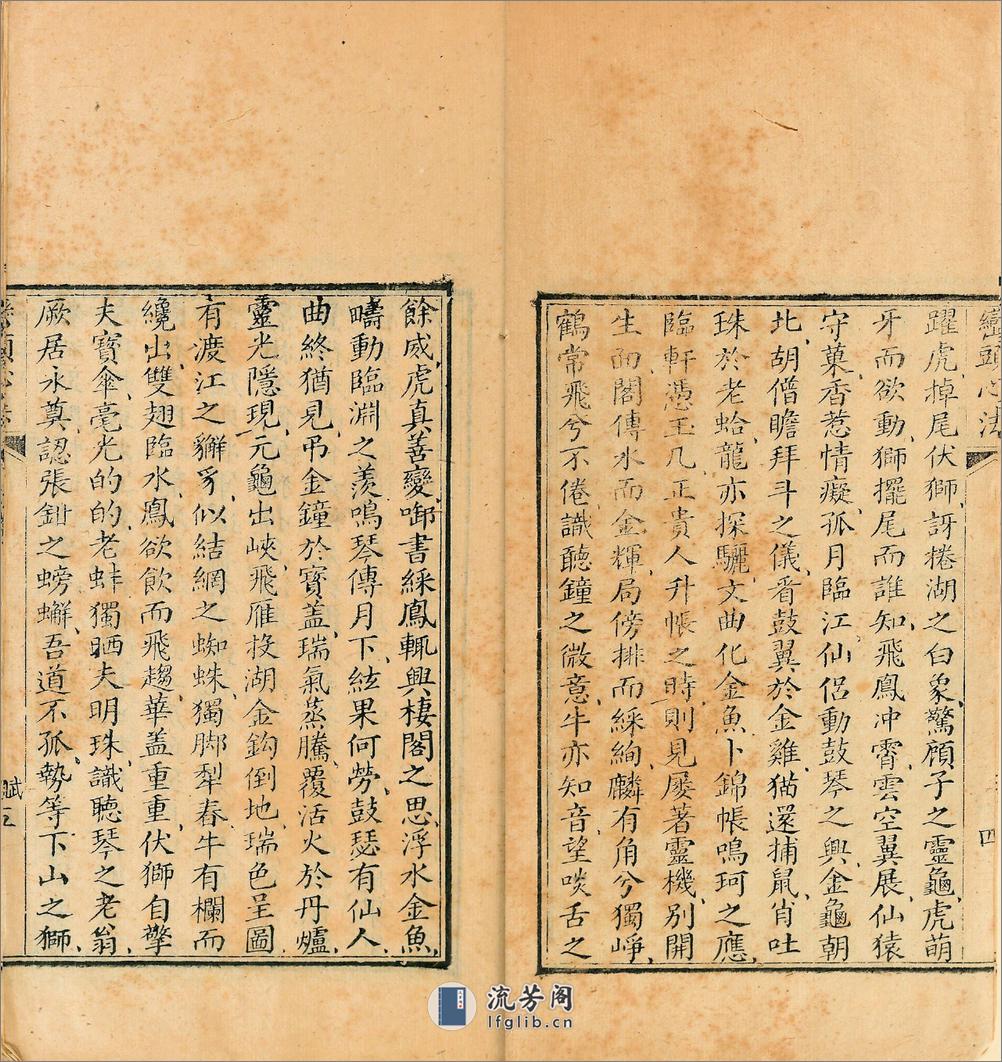 巒頭心法
四
躍虎掉尾伏獅訝捲湖之白象驚顧子之靈龜虎萌
牙而欲動獅擺尾而誰知飛鳳冲霄雲空翼展仙猿
守菓香惹情癡孤月臨江仙侶動鼓琴之興金龜朝
北胡僧瞻拜斗之儀看鼓翼於金雞猫還捕鼠肖吐
珠於老蛤龍亦探驪文曲化金魚卜錦帳鳴珂之應
臨軒憑玉几正貴人升帳之時則見屡著靈機別開
生面閣傳水而金輝局傍排而綵絢麟有角兮獨崢
鶴常飛兮不倦識聽鐘之微意牛亦知音望啖舌之
餘威虎真善變啣書綵鳳輒興棲閣之思浮水金魚
疇動臨淵之羨鳴琴傳月下絃果何勞鼓瑟有仙人
曲終猶見吊金鐘於寳盖瑞氣蒸騰覆活火於丹爐
靈光隱現元龜出峽飛雁投湖金鈎倒地瑞色呈圖
有渡江之獬豸似結網之蜘蛛獨脚犁春牛有欄而
纔出雙翅臨水鳳欲飲而飛趨華盖重重伏獅自擎
夫寳傘毫光的的老蚌獨晒夫明珠識聽琴之老翁
厥居永奠認張鉗之螃蠏吾道不孤勢等下山之獅
賦
流芳阁
lfglib.cn